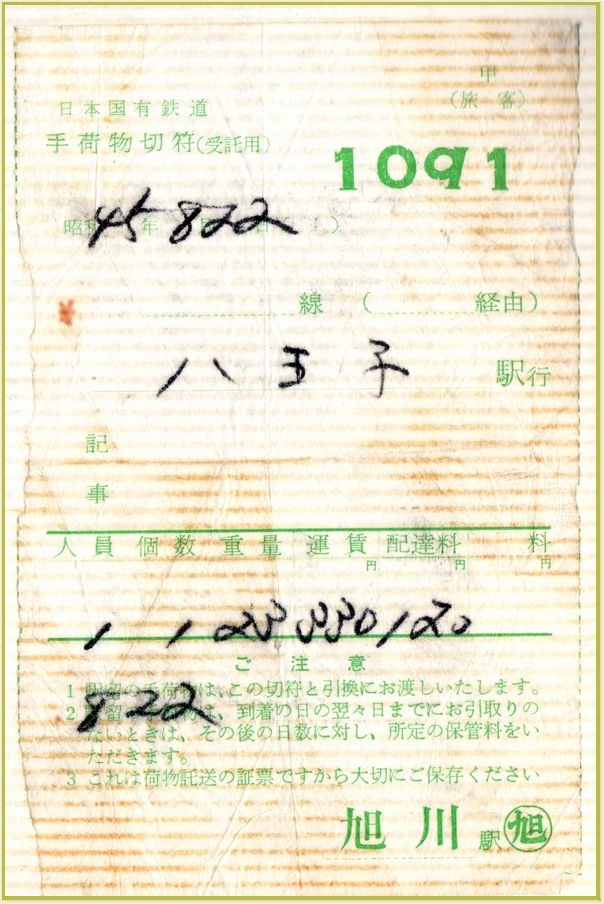 甲
日本国有鉄道
(旅客)
手荷物切符(受託用)
1091
昭和45年 822 ( )
線 ( 経由)
八王子 駅行
記
事
人員 個数 重量 運賃 配達料 料
円 円 円
1 1 23 330 120
ご注意
1 駅留の手荷物は、この切符と引換にお渡しいたします。
822
2 駅留の手荷物は、到着の日の翌々日までにお引取りの
ないときは、その後の日数に対し、所定の保管料をい
ただきます。
3 これは荷物託送の証票ですから大切にご保存ください
旭川駅 旭